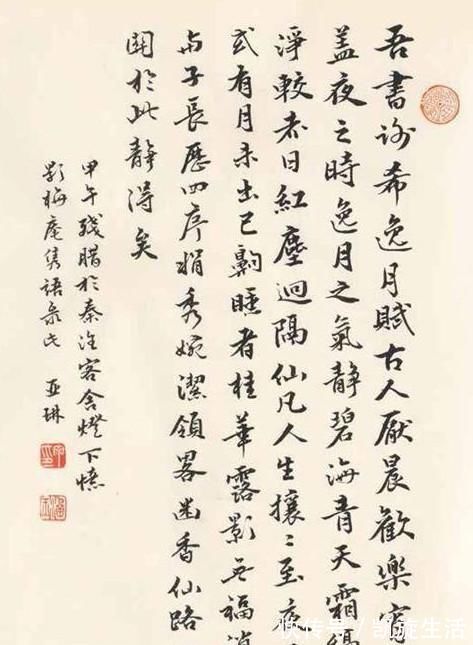 吾书谢希逸月賦古人厭晨歡樂宵
盖夜之時逸月之氣靜碧海青天霜縞
淨較赤日紅塵迥隔仙凡人生攘々至夜
或有月未出已齁睡者桂華露影无福消
与子長歷四序娟秀婉潔領畧幽香仙路
關於此靜得矣
甲午残腊於秦淮客舍燈下憶
影梅庵隽語录之 亚琳
快传号/凯旋生活